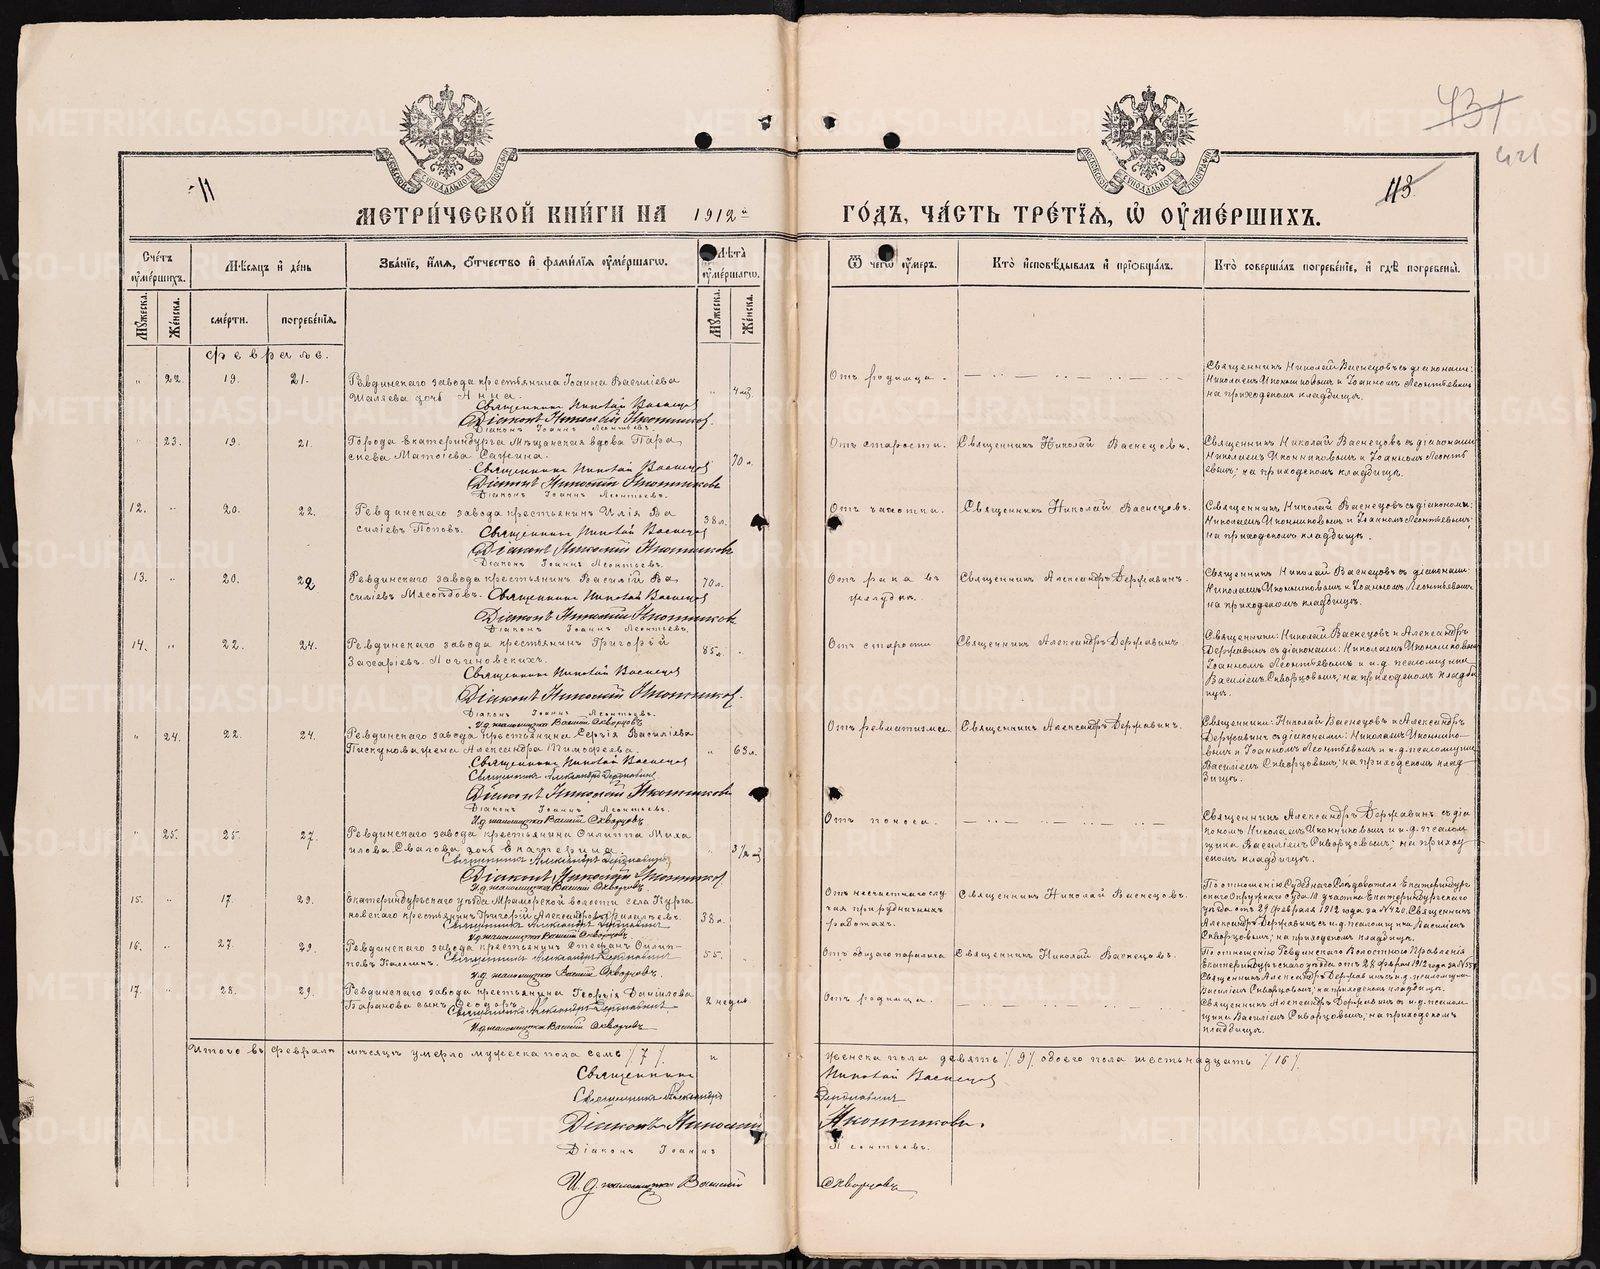 11
431
421
113
МЕТРИ́ЧЕСКОЙ КНИ́ГИ НА 1912й ГО́ДЪ, ЧА́СТЬ ТРЕ́ТЇѦ, Ѡ ОУМЕ́РШИХЪ.
Сче́тъ оуме́ршихъ.
Мужеска.
Же́нска.
Мѣ́сяцъ и де́нь
сме́рти.
погребе́нїя.
Зва́нїе, и́мя, о́тчество и фами́лїя оуме́ршагѡ.
Лѣ́та оуме́ршагѡ.
Мужеска.
Же́нска.
Ѿ чегѡ̀ оу́меръ.
Кто̀ исповѣ́дывалъ и прїѡбща́лъ.
Кто̀ соверша́лъ погребе́нїе, и гдѣ̀ погребены̀.
Февраль.
" 22. 19. 21. Ревдинскаго завода крестьянина Іоанна Василіева
Шаляева дочь Анна. " 4 мѣ.
Священникъ Николай Васнецовъ
Діаконъ Николай Иконниковъ
Діаконъ Іоаннъ Леонтьевъ.
Отъ родимца.
Священникъ Николай Васнецовъ съ діаконами:
Николаемъ Иконниковымъ и Іоанномъ Леонтьевымъ
на приходскомъ кладбищѣ.
" 23. 19. 21. Города Екатеринбурга Мѣщанская вдова Пара
скева Матѳіева Сажина. 70 л.
Священникъ Николай Васнецовъ
Діаконъ Николай Иконниковъ
Діаконъ Іоаннъ Леонтьевъ.
Отъ старости. Священникъ Николай Васнецовъ.
Священникъ Николай Васнецовъ съ діаконами
Николаемъ Иконниковымъ и Іоанномъ Леонть
евымъ; на приходскомъ кладбищѣ.
12. " 20. 22. Ревдинскаго завода крестьянинъ Илія Ва
силіевъ Поповъ. 38 л.
Священникъ Николай Васнецовъ
Діаконъ Николай Иконниковъ
Діаконъ Іоаннъ Леонтьевъ.
Отъ чахотки. Священникъ Николай Васнецовъ.
Священникъ Николай Васнецовъ съ діаконами:
Николаемъ Иконниковымъ и Іоанномъ Леонтьевымъ;
на приходскомъ кладбищѣ.
13. " 20. 22 Ревдинскаго завода крестьянинъ Василій Ва
силіевъ Мясоѣдовъ. 70 л.
Священникъ Николай Васнецовъ
Діаконъ Николай Иконниковъ
Діаконъ Іоаннъ Леонтьевъ.
Отъ рака въ
желудкѣ.
Священникъ Александръ Державинъ.
Священникъ Николай Васнецовъ съ діаконами:
Николаемъ Иконниковымъ и Іоанномъ Леонтьевымъ
на приходскомъ кладбищѣ.
14. " 22. 24. Ревдинскаго завода крестьянинъ Григорій
Захаріевъ Логиновскихъ. 85 л.
Священникъ Николай Васнецовъ
Діаконъ Николай Иконниковъ.
Діаконъ Іоаннъ Леонтьевъ.
И.д. псаломщика Василій Скворцовъ
Отъ старости Священникъ Александръ Державинъ.
Священники: Николай Васнецовъ и Александръ
Державинъ съ діаконами: Николаемъ Иконниковымъ
Іоанномъ Леонтьевымъ и и.д. псаломщика
Василіемъ Скворцовымъ; на приходскомъ кладби
щѣ.
" 24. 22. 24. Ревдинскаго завода крестьянина Сергія Василіева
Пискунова жена Александра Тимоѳеева. " 63 л.
Священникъ Николай Васнецовъ
Священникъ Александръ Державинъ
Діаконъ Николай Иконниковъ
Діаконъ Іоаннъ Леонтьевъ.
И.д. псаломщика Василій Скворцовъ.
Отъ ревматизма. Священникъ Александръ Державинъ.
Священники: Николай Васнецовъ и Александръ
Державинъ съ діаконами: Николаемъ Иконнико-
вымъ и Іоанномъ Леонтьевымъ и и.д. псаломщика
Василіемъ Скворцовымъ; на приходскомъ клад-
бищѣ.
" 25. 25. 27. Ревдинскаго завода крестьянина Филиппа Миха
илова Свалова дочь Екатерина.
Священникъ Александръ Державинъ
Діаконъ Николай Иконниковъ
И.д. псаломщика Василій Скворцовъ.
Отъ поноса.
Священникъ Александръ Державинъ съ діа
кономъ Николаемъ Иконниковымъ и и.д. псалом
щика Василіемъ Скворцовымъ; на приход-
скомъ кладбищѣ.
15. " 17. 29. Екатеринбургскаго уѣзда Мраморской волости села Курга
новскаго крестьянинъ Григорій Александровъ Филатьевъ. 38 л.
Священникъ Александръ Державинъ
И.д. псаломщика Василій Скворцовъ
Отъ несчастнаго слу
чая при рудничныхъ
работахъ.
Священникъ Николай Васнецовъ.
По отношенію Судебнаго Слѣдователя Екатеринбург
скаго Окружнаго Суда 10 участка Екатеринбургскаго
уѣзда отъ 29 февраля 1912 года за № 420. Священникъ
Александръ Державинъ съ и.д. псаломщика Василіемъ
Скворцовымъ; на приходскомъ кладбищѣ.
16. " 27. 29. Ревдинскаго завода крестьянинъ Стефанъ Филип-
повъ Калгинъ. 55.
Священникъ Александръ Державинъ
И.д. псаломщика Василій Скворцовъ.
Отъ общаго паралича Священникъ Николай Васнецовъ.
По отношенію Ревдинскаго Волостнаго Правленія
Екатеринбургскаго уѣзда отъ 28 февраля 1912 года за №
Священникъ Александръ Державинъ съ и.д. псаломщика
Василіемъ Скворцовымъ; на приходскомъ кладбищѣ.
17. " 28. 29. Ревдинскаго завода крестьянина Георгія Даніилова
Баранова сынъ Ѳеодоръ. 2 недѣл
Священникъ Александръ Державинъ
И.д. псаломщика Василій Скворцовъ
Отъ родимца.
Священникъ Александръ Державинъ съ и.д. псалом-
щика Василіемъ Скворцовымъ; на приходскомъ
кладбищѣ.
Итого въ февралѣ мѣсяцѣ умерло мужеска пола семь /7/. и женска пола девять /9/ обоего пола шестьнадцать /16/.
Священникъ Николай Васнецовъ
Священникъ Александръ Державинъ
Діаконъ Николай Иконниковъ.
Діаконъ Іоаннъ Леонтьевъ.
И.д. псаломщика Василій Скворцовъ